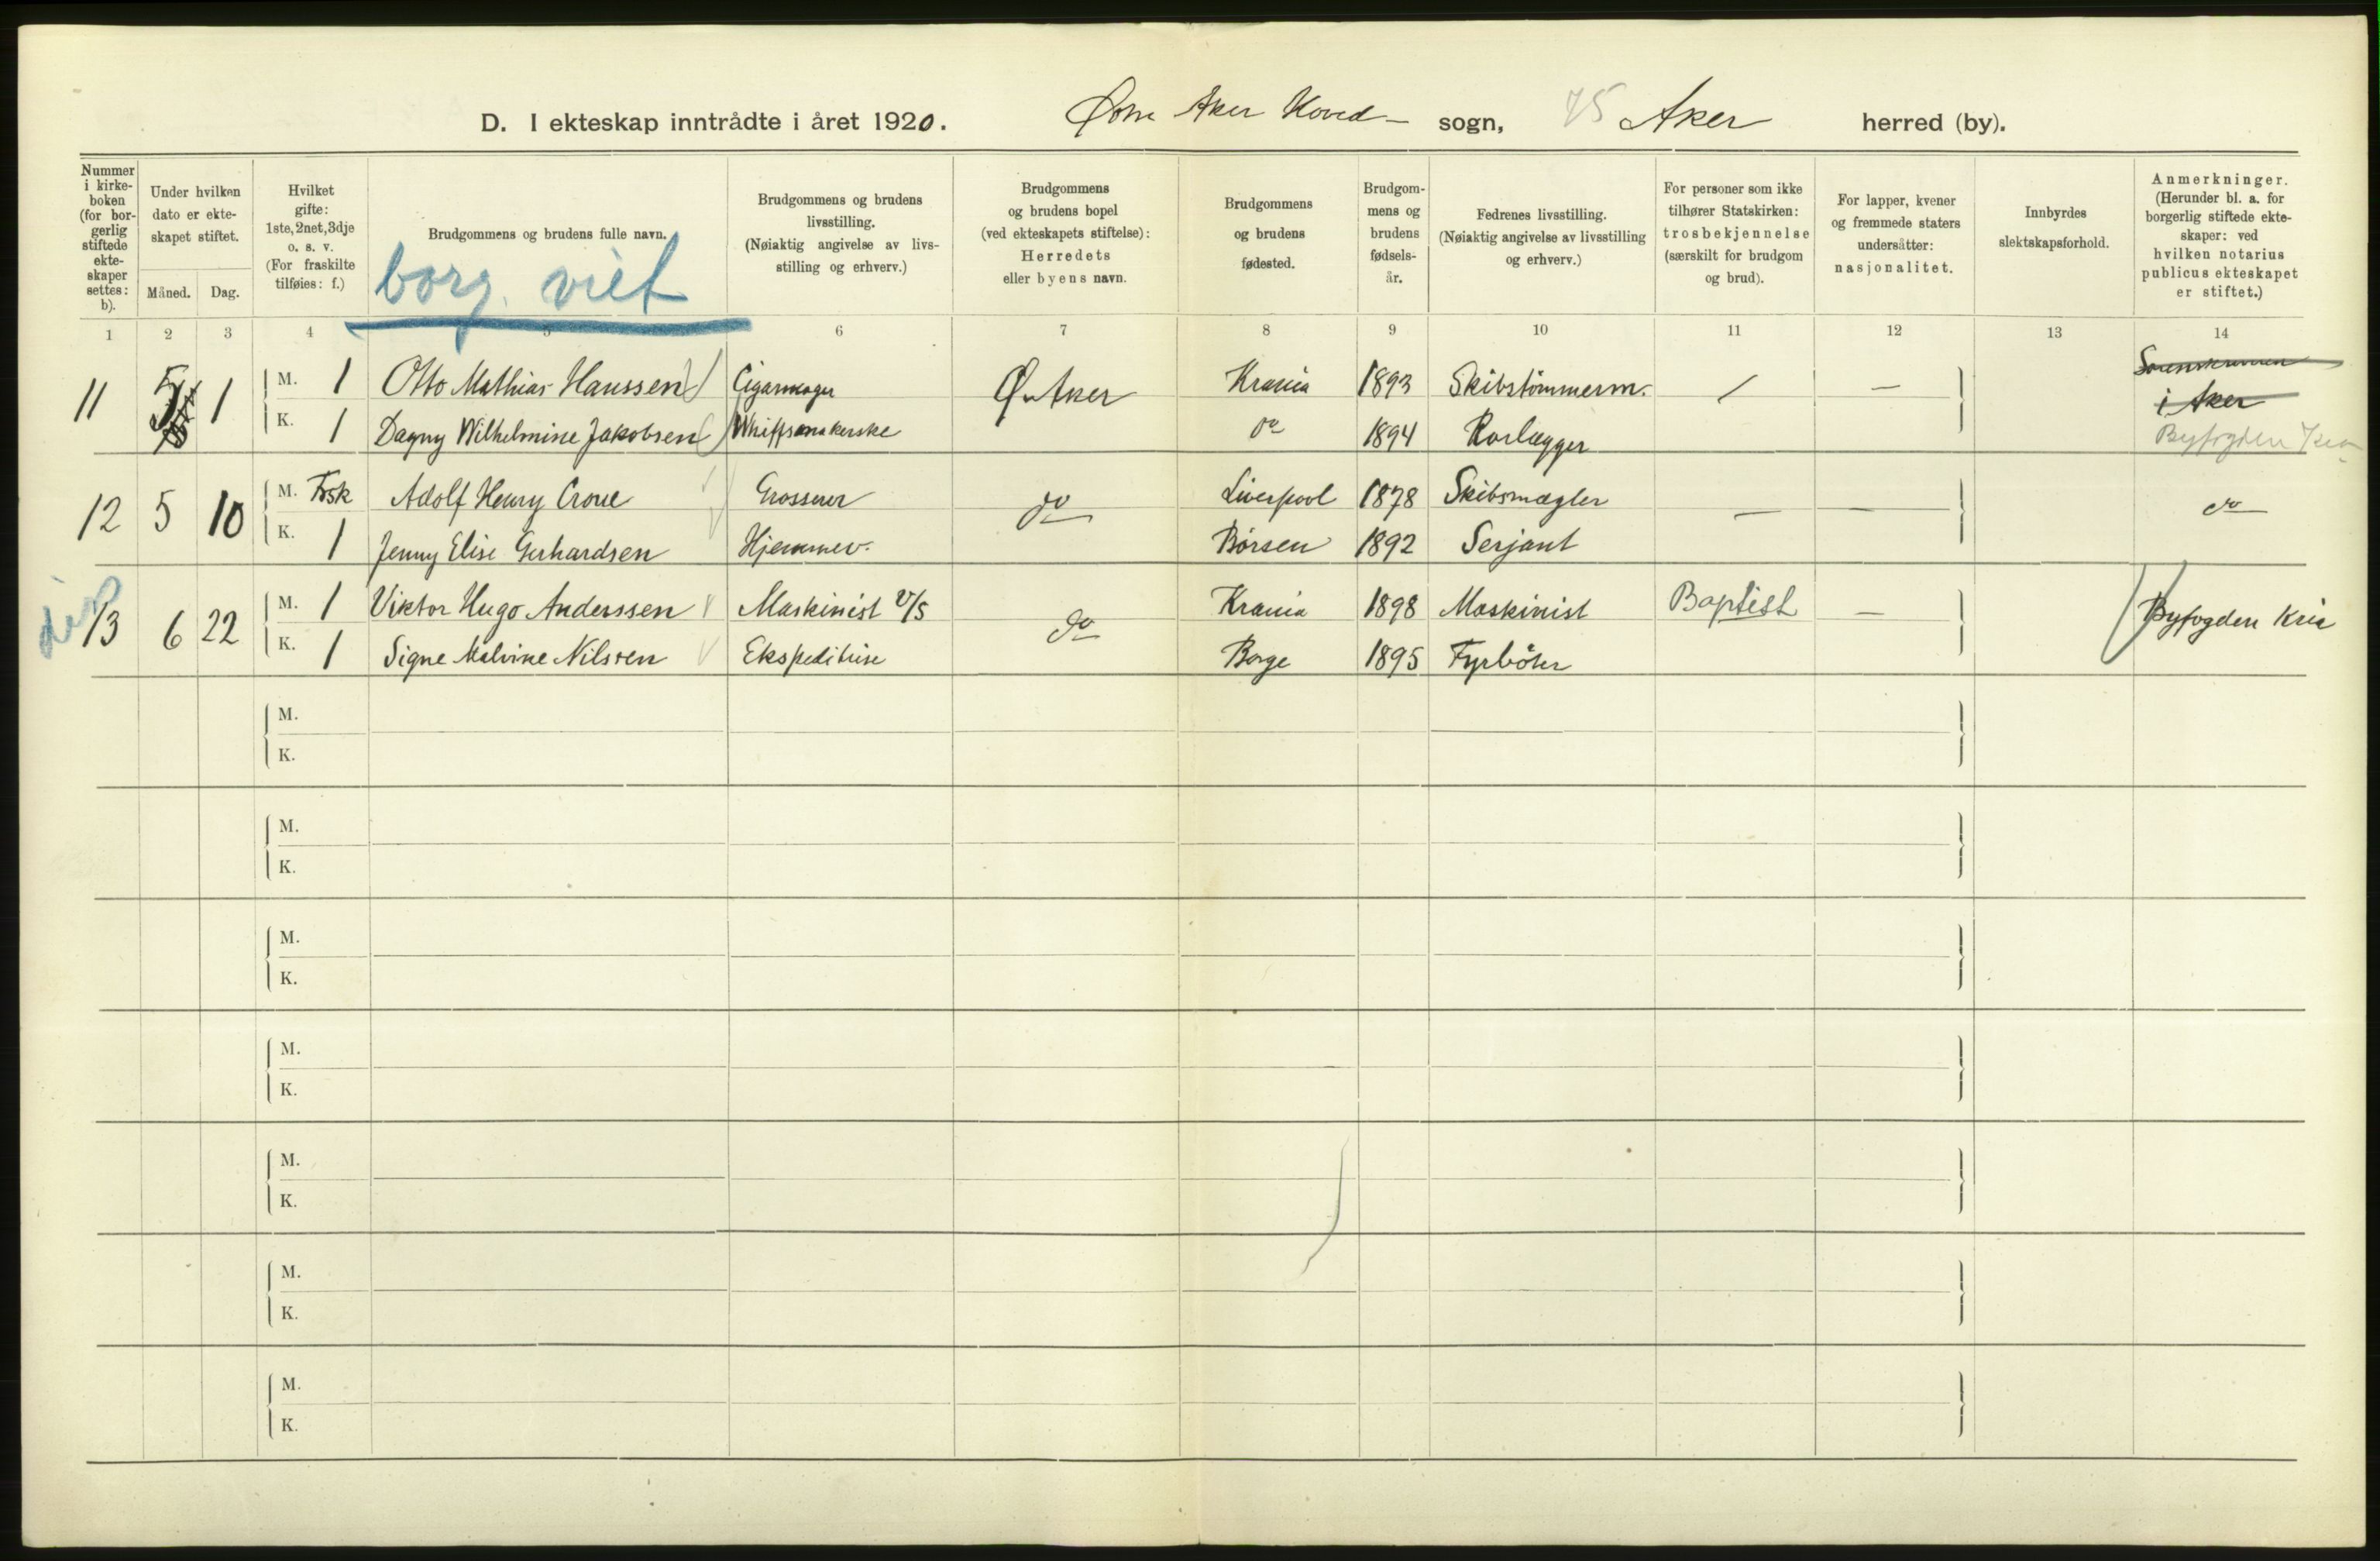 D. I ekteskap inntrådte i året 1920. Østre Aker Hoved- sogn, 75 Aker herred (by).
Nummer i kirke-boken (for bor-gerlig stiftede ekte-skaper settes: b).
Under hvilken dato er ekte-skapet stiftet.
Måned. Dag.
Hvilket gifte: 1ste, 2net, 3dje o. s. v. (For fraskilte tilføies: f.)
Brudgommens og brudens fulle navn.
borg. viet
Brudgommens og brudens livsstilling. (Nøiaktig angivelse av livs-stilling og erhverv.)
Brudgommens og brudens bopel (ved ekteskapets stiftelse): Herredets eller byens navn.
Brudgommens og brudens fødested.
Brudgom-mens og brudens fødsels-år.
Fedrenes livsstilling. (Nøiaktig angivelse av livsstilling og erhverv.)
For personer som ikke tilhører Statskirken: trosbekjennelse (særskilt for brudgom og brud).
For lapper, kvener og fremmede staters undersåtter: nasjonalitet.
Innbyrdes slektskapsforhold.
Anmerkninger. (Herunder bl. a. for borgerlig stiftede ekte-skaper: ved hvilken notarius publicus ekteskapet er stiftet.)
1 2 3 4 5 6 7 8 9 10 11 12 13 14
11 5 1 M. 1 Otto Mathias Hanssen Cigarmager Ø. Aker Krania 1893 Skibstömmerm. — — Sorenskriveren i Aker
K. 1 Dagny Wilhelmine Jakobsen Whiffsmakerske do 1894 Rörlægger Byfogden Kra
12 5 10 M. Frsk Adolf Henry Crone Grosserer do Liverpool 1878 Skibsmægler — — do
K. 1 Jenny Elise Gerhardsen Hjemmev. Börsen 1892 Serjant
13 6 22 M. 1 Viktor Hugo Anderssen Maskinist D/S do Krania 1898 Maskinist Baptist — Byfogden Kria
K. 1 Signe Malvine Nilsen Ekspeditrise Borge 1895 Fyrböter
M.
K.
M.
K.
M.
K.
M.
K.
M.
K.
M.
K.
M.
K.